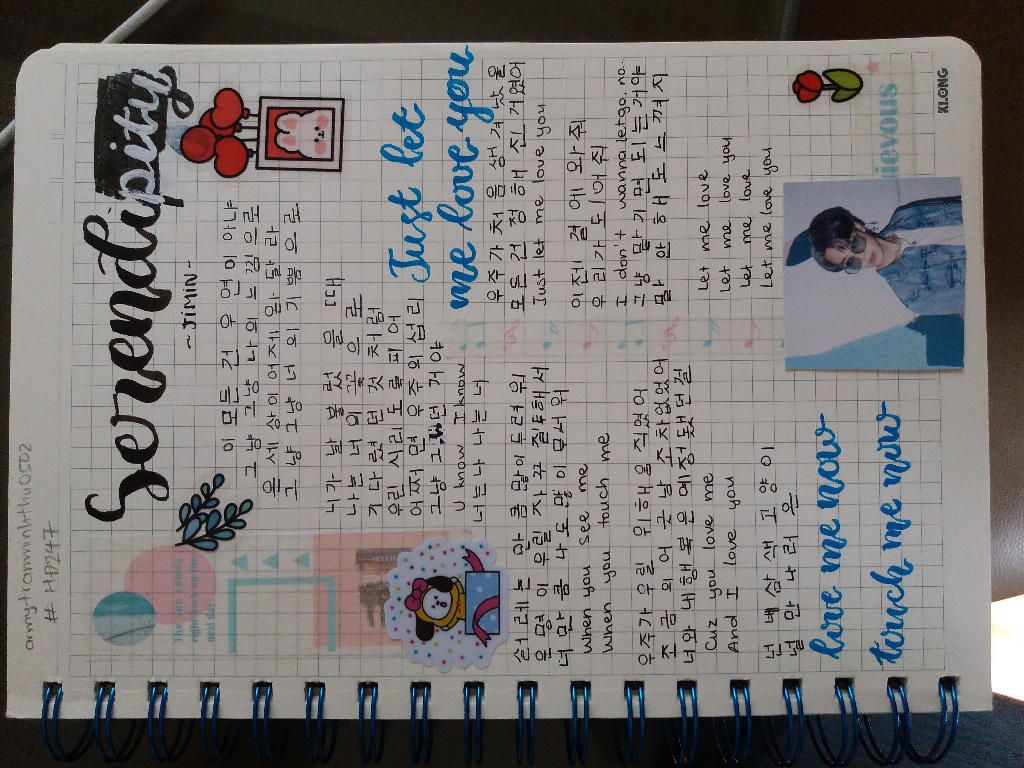 armytraminhthu0502
# HD247
Serendipity
~JIMIN~
이 모든 건 우연이 아냐
그냥 그냥 나의 느낌으로
온 세상이 어제완 달라
그냥 그냥 너의 기쁨으로
니가 날 불렀을 때
나는 너의 꽃으로
기다렸던 것처럼
우린 시리도록 피어
어쩌면 우주의 섭리
그냥 그랬던 거야
U know I know
너는 나 나는 너
설레는 만큼 많이 두려워
운명이 우릴 자꾸 질투해서
너만큼 나도 많이 무서워
when you see me
when you touch me
우주가 우릴 위해 움직였어
조금의 어긋남조차 없었어
너와 내 행복은 예정됐던 걸
Cuz you love me
And I love you
넌 네 삼색 고양이
널 만나러 온
love me now
touch me now
Just let
me love you
우주가 처음 생겨났을
모든 건 정해진 거였어
Just let me love you
이젠 곁에 와줘
우리가 되어줘
I don't wanna let go, no..
그냥 맡기면 되는 거야
말 안 해도 느껴지
Let me love
Let me love you
Let me love
Let me love you
ievous
KLONG